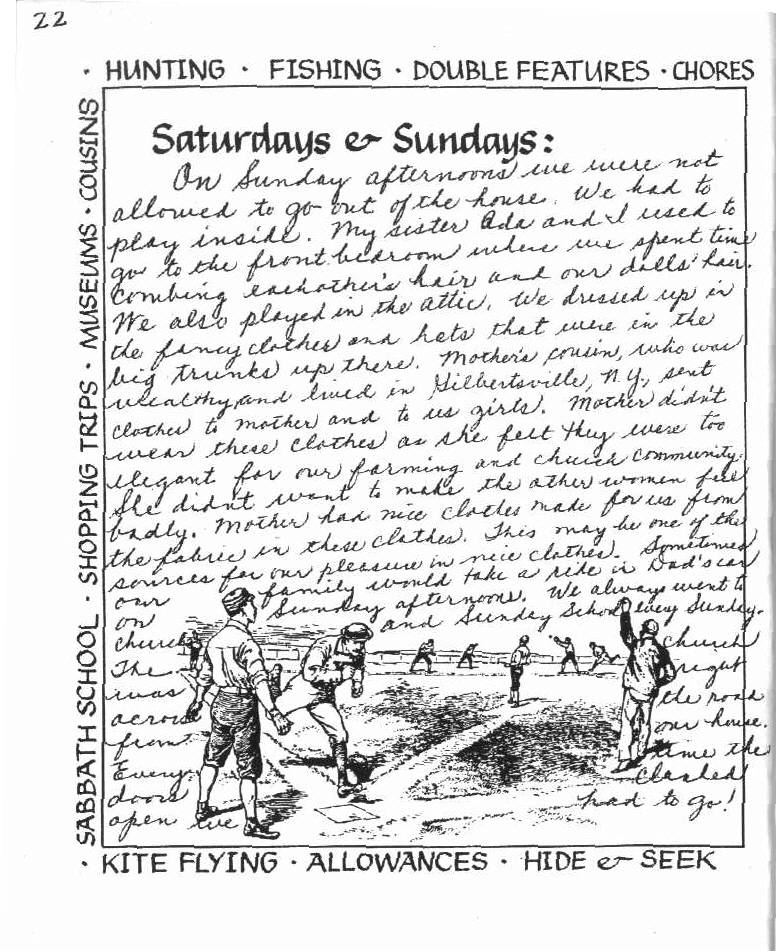 22
· HUNTING · FISHING · DOUBLE FEATURES · CHORES
SABBATH SCHOOL · SHOPPING TRIPS · MUSEUMS · COUSINS
Saturdays & Sundays:
On Sunday afternoons we were not
allowed to go out of the house. We had to
play inside. My sister Ada and I used to
go to the front bedroom where we spent time
combing eachother's hair and our dolls' hair.
We also played in the attic. We dressed up in
the fancy clothes and hats that were in the
big trunks up there. Mother's cousin, who was
wealthy and lived in Gilbertsville, N.Y., sent
clothes to mother and to us girls. Mother didn't
wear these clothes as she felt they were too
elegant for our farming and church community.
She didn't want to make the other women feel
badly. Mother had nice clothes made for us from
the fabric in these clothes. This may be one of the
sources for our pleasure in nice clothes. Sometimes
our family would take a ride in Dad's car
on Sunday afternoons. We always went to
church and Sunday School every Sunday.
The church
was right
across the road
from our house.
Every time the
doors clanked
open we had to go!
· KITE FLYING · ALLOWANCES · HIDE & SEEK